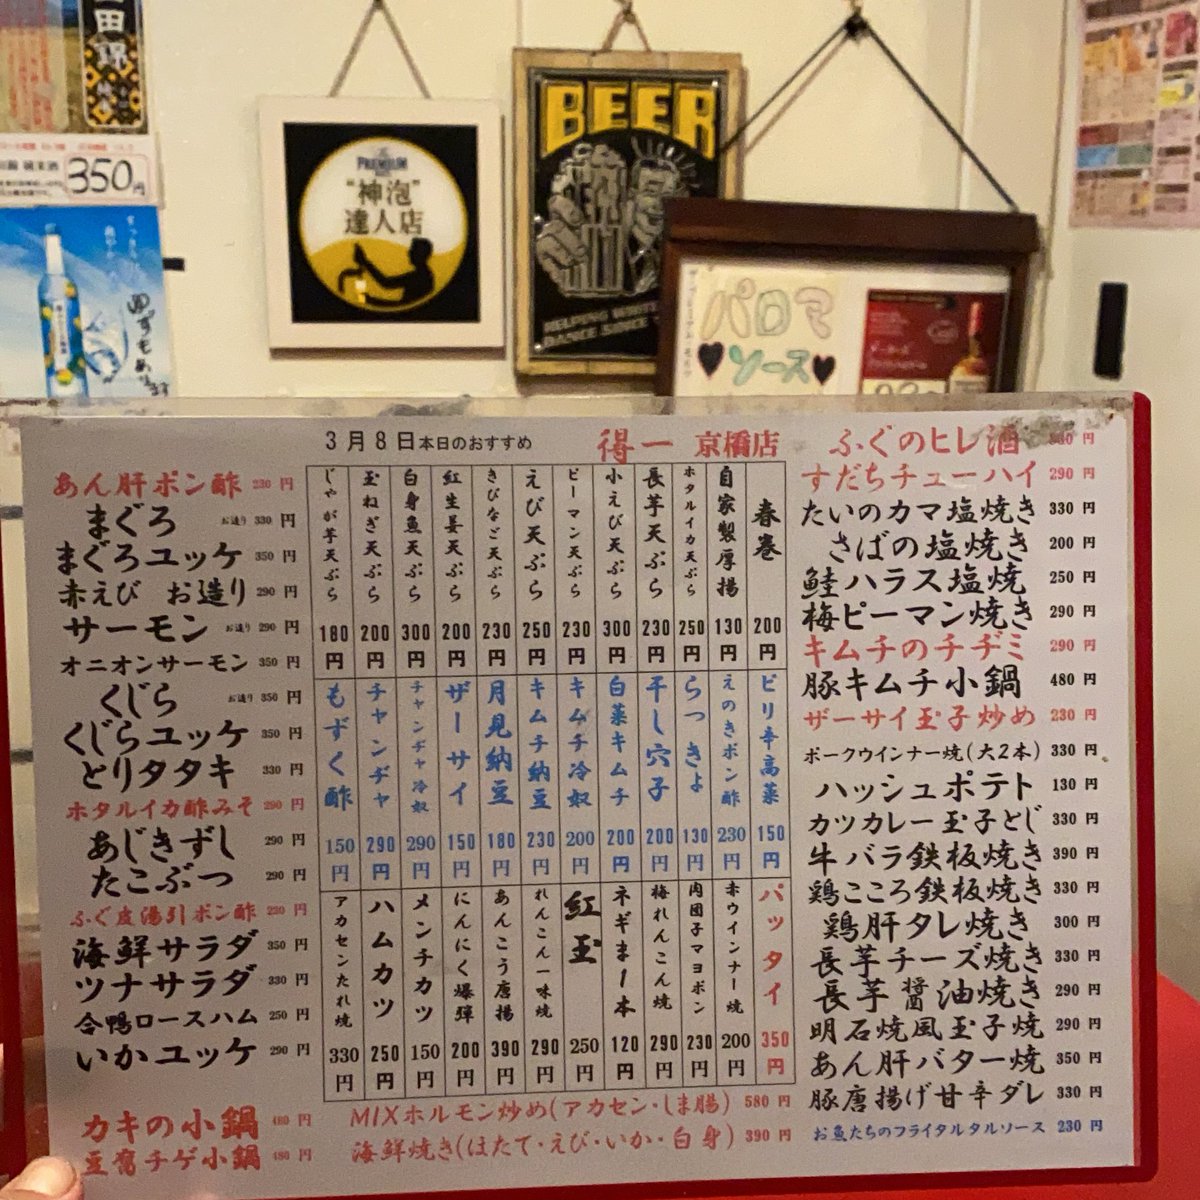 350円
PREMIUM
"神泡"
達人店
BEER
パロマ
ソース
3月8日本日のおすすめ
得一 京橋店
あん肝ポン酢 230円
まぐろ お造り 330円
まぐろユッケ 350円
赤えび お造り 290円
サーモン お造り 290円
オニオンサーモン 350円
くじら お造り 350円
くじらユッケ 350円
とりタタキ 330円
ホタルイカ酢みそ 290円
あじきずし 290円
たこぶつ 290円
ふぐ皮湯引ポン酢 230円
海鮮サラダ 350円
ツナサラダ 330円
合鴨ロースハム 250円
いかユッケ 290円
カキの小鍋 480円
豆腐チゲ小鍋 480円
春巻 200円
自家製厚揚 130円
ホタルイカ天ぷら 250円
長芋天ぷら 230円
小えび天ぷら 300円
ピーマン天ぷら 230円
えび天ぷら 250円
きびなご天ぷら 230円
紅生姜天ぷら 200円
白身魚天ぷら 300円
玉ねぎ天ぷら 200円
じゃが芋天ぷら 180円
ピリ辛高菜 150円
えのきポン酢 230円
らっきょ 130円
干し穴子 200円
白菜キムチ 200円
キムチ冷奴 200円
キムチ納豆 230円
月見納豆 180円
ザーサイ 150円
チャンヂャ冷奴 290円
チャンヂャ 290円
もずく酢 150円
パッタイ 350円
赤ウインナー焼 200円
肉団子マヨポン 230円
梅れんこん焼 290円
ネギま1本 120円
紅玉 250円
れんこん一味焼 290円
あんこう唐揚 390円
にんにく爆弾 200円
メンチカツ 150円
ハムカツ 250円
アカセンたれ焼 330円
MIXホルモン炒め(アカセン・しま腸) 580円
海鮮焼き(ほたて・えび・いか・白身) 390円
ふぐのヒレ酒 円
すだちチューハイ 290円
たいのカマ塩焼き 330円
さばの塩焼き 200円
鮭ハラス塩焼 250円
梅ピーマン焼き 290円
キムチのチヂミ 290円
豚キムチ小鍋 480円
ザーサイ玉子炒め 230円
ポークウインナー焼(大2本) 330円
ハッシュポテト 130円
カツカレー玉子とじ 330円
牛バラ鉄板焼き 390円
鶏こころ鉄板焼き 330円
鶏肝タレ焼き 300円
長芋チーズ焼き 330円
長芋醤油焼き 290円
明石焼風玉子焼 290円
あん肝バター焼 350円
豚唐揚げ甘辛ダレ 330円
お魚たちのフライタルタルソース 230円